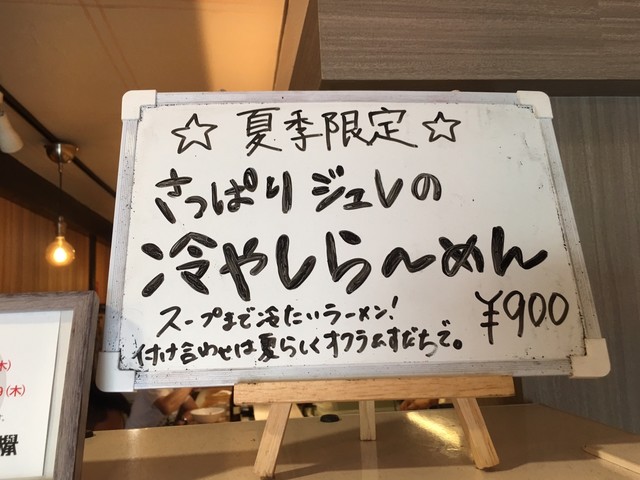 ☆ 夏季限定 ☆
さっぱりジュレの
冷やしら〜めん
スープまで冷たいラーメン!
¥900
付け合わせは夏らしくオクラ&すだちで。
(木)
9(木)